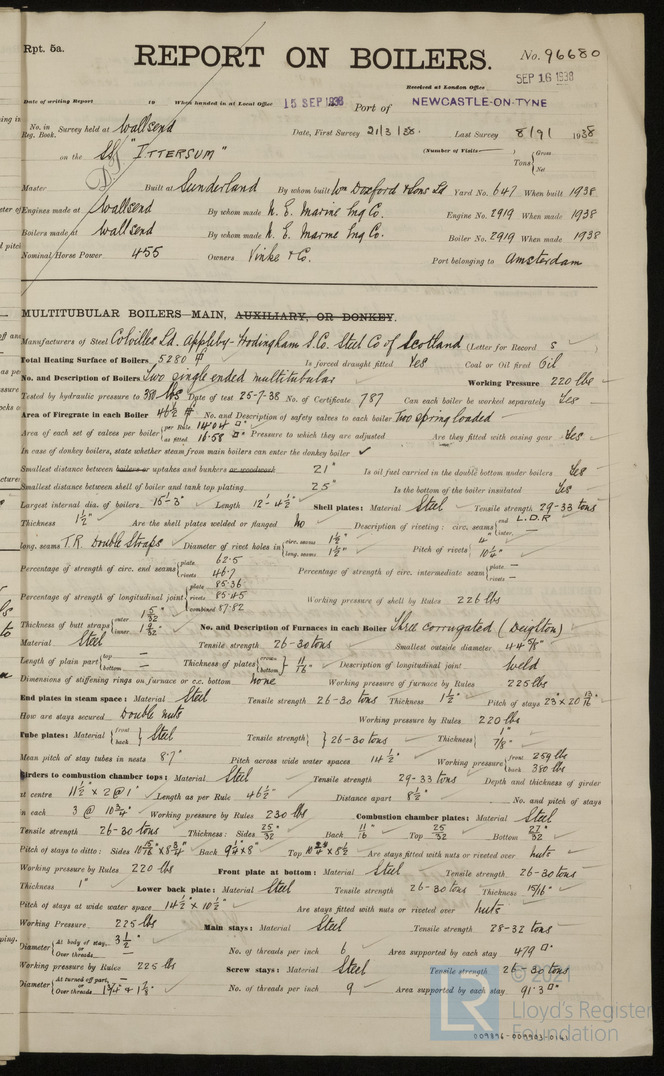 Rpt. 5a.
REPORT ON BOILERS.
No. 96680
Received at London Office SEP 16 1938
Date of writing Report 19 When handed in at Local Office 15 SEP 1938 Port of NEWCASTLE-ON-TYNE
No. in Reg. Book. Survey held at Wallsend Date, First Survey 21/3/38. Last Survey 8/9/ 1938
on the "ITTERSUM" (Number of Visits ) Tons { Gross Net
Master Built at Sunderland By whom built Wm Doxford & Sons Ld Yard No. 647 When built 1938
Engines made at Wallsend By whom made N. E. Marine Eng Co. Engine No. 2919 When made 1938
Boilers made at Wallsend By whom made N. E. Marine Eng Co. Boiler No. 2919 When made 1938
Nominal Horse Power 455 Owners Vinke & Co. Port belonging to Amsterdam
MULTITUBULAR BOILERS—MAIN, AUXILIARY, OR DONKEY.
Manufacturers of Steel Colvilles Ld. Appleby-Frodingham S.Co. Steel Co of Scotland (Letter for Record S )
Total Heating Surface of Boilers 5280 Is forced draught fitted Yes Coal or Oil fired Oil
No. and Description of Boilers Two single ended multitubular Working Pressure 220 lbs
Tested by hydraulic pressure to 380 lbs Date of test 25-7-38 No. of Certificate 787 Can each boiler be worked separately Yes
Area of Firegrate in each Boiler 46½ No. and Description of safety valves to each boiler Two spring loaded
Area of each set of valves per boiler { per Rule 14.04 □" as fitted 16.58 □" Pressure to which they are adjusted Are they fitted with easing gear Yes
In case of donkey boilers, state whether steam from main boilers can enter the donkey boiler ✓
Smallest distance between boilers or uptakes and bunkers or woodwork 21" Is oil fuel carried in the double bottom under boilers Yes
Smallest distance between shell of boiler and tank top plating 25" Is the bottom of the boiler insulated Yes
Largest internal dia. of boilers 15'-3" Length 12'-4½" Shell plates: Material Steel Tensile strength 29-33 tons
Thickness 1½" Are the shell plates welded or flanged No Description of riveting: circ. seams { end L.D.R inter. —
long. seams T.R. Double Straps Diameter of rivet holes in { circ. seams 1½" long. seams 1½" Pitch of rivets { 4" 10¼"
Percentage of strength of circ. end seams { plate 62.5 rivets 46.7 Percentage of strength of circ. intermediate seam { plate — rivets —
Percentage of strength of longitudinal joint { plate 85.36 rivets 85.45 combined 87.82 Working pressure of shell by Rules 226 lbs
Thickness of butt straps { outer 1 5/32 inner 1 9/32 No. and Description of Furnaces in each Boiler Three corrugated (Deighton)
Material Steel Tensile strength 26-30 tons Smallest outside diameter 44⅝"
Length of plain part { top — bottom — Thickness of plates { crown bottom } 11/16" Description of longitudinal joint Weld
Dimensions of stiffening rings on furnace or c.c. bottom none Working pressure of furnace by Rules 225 lbs
End plates in steam space: Material Steel Tensile strength 26-30 tons Thickness 1½" Pitch of stays 23" x 20 13/16"
How are stays secured Double nuts Working pressure by Rules 220 lbs
Tube plates: Material { front back } Steel Tensile strength { } 26-30 tons Thickness { 1" 7/8"
Mean pitch of stay tubes in nests 8.7" Pitch across wide water spaces 14½" Working pressure { front 259 lbs back 380 lbs
Girders to combustion chamber tops: Material Steel Tensile strength 29-33 tons Depth and thickness of girder
at centre 11½" x 2 @ 1" Length as per Rule 46½" Distance apart 8½" No. and pitch of stays
in each 3 @ 10¾" Working pressure by Rules 230 lbs Combustion chamber plates: Material Steel
Tensile strength 26-30 tons Thickness: Sides 25/32 Back 11/16 Top 25/32 Bottom 27/32
Pitch of stays to ditto: Sides Back 9¼" x 8" Top 10¾" x 8½ Are stays fitted with nuts or riveted over nuts
Working pressure by Rules 220 lbs Front plate at bottom: Material Steel Tensile strength 26-30 tons
Thickness 1" Lower back plate: Material Steel Tensile strength 26-30 tons Thickness 15/16"
Pitch of stays at wide water space 14½" x 10½" Are stays fitted with nuts or riveted over nuts
Working Pressure 225 lbs Main stays: Material Steel Tensile strength 28-32 tons
Diameter { At body of stay, 3½" or Over threads — No. of threads per inch 6 Area supported by each stay 479 □"
Working pressure by Rules 225 lbs Screw stays: Material Steel Tensile strength 26-30 tons
Diameter { At turned off part, — or Over threads 1¾" & 1⅞" No. of threads per inch 9 Area supported by each stay 91.3 □"
© 2021
LR
Lloyd's Register
Foundation
009896-009903-0161